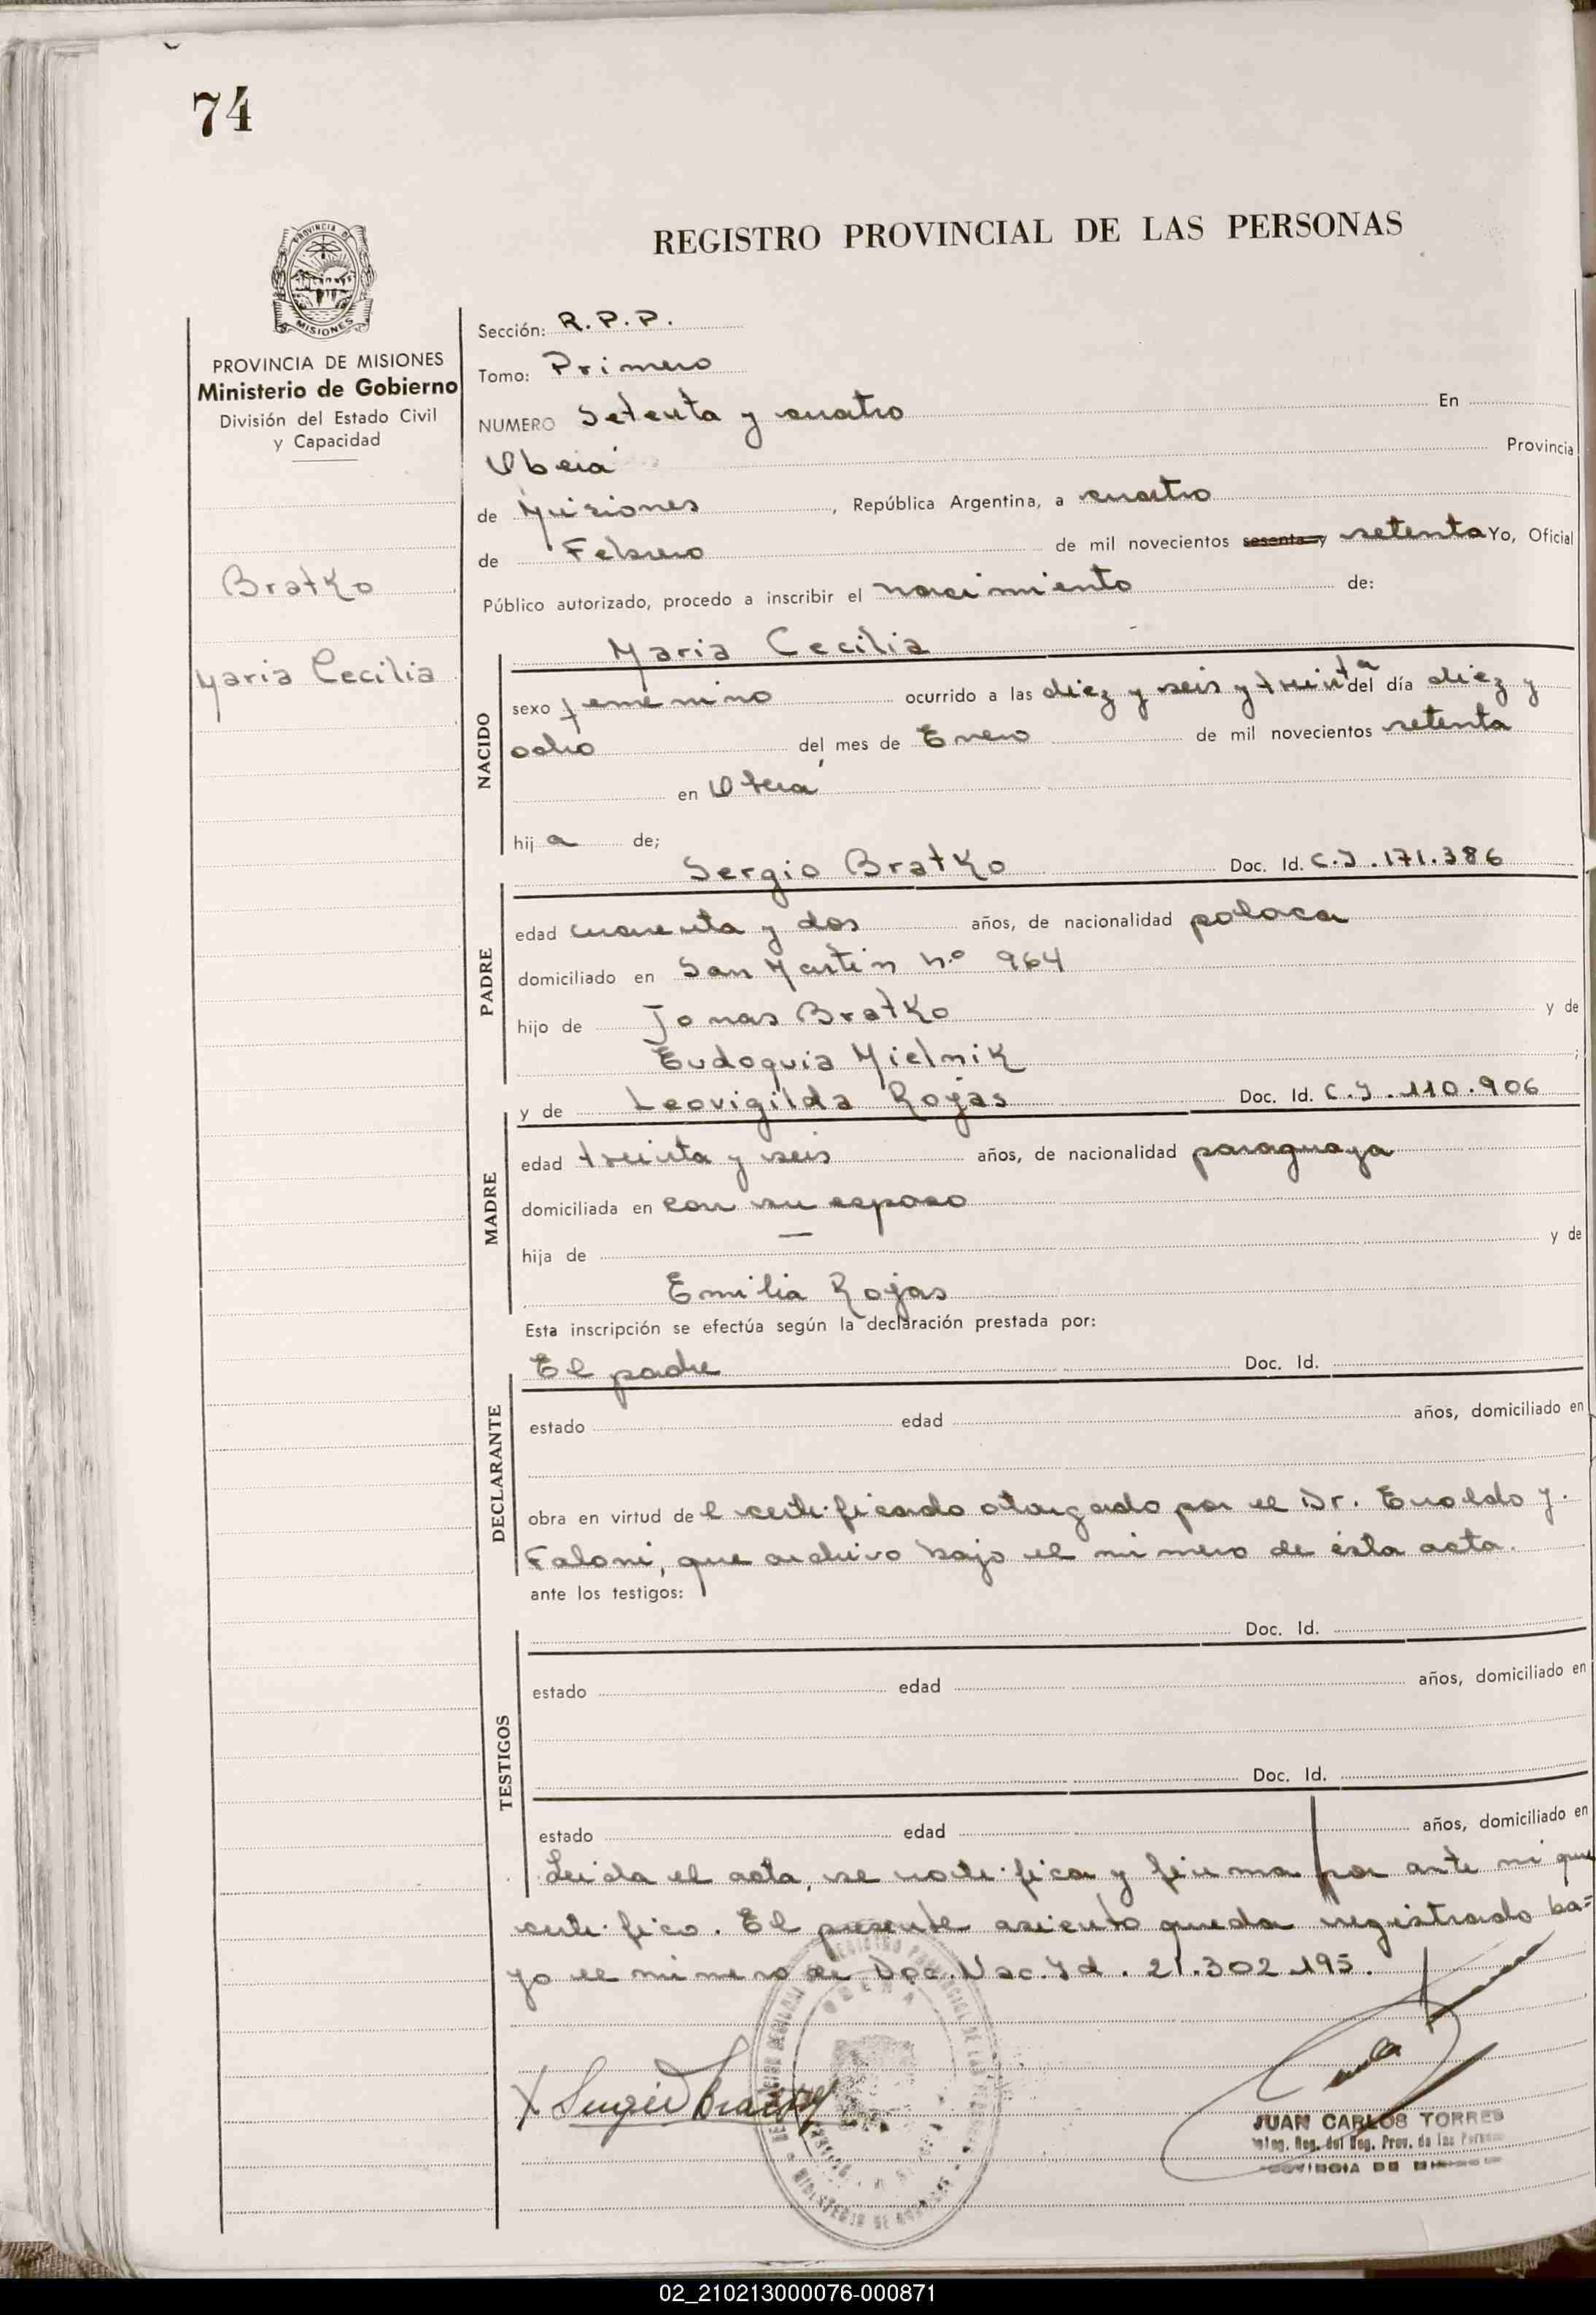 74
REGISTRO PROVINCIAL DE LAS PERSONAS
PROVINCIA DE
MISIONES
PROVINCIA DE MISIONES
Ministerio de Gobierno
División del Estado Civil
y Capacidad
Bratko
Maria Cecilia
Sección: R.P.P.
Tomo: Primero
NUMERO Setenta y cuatro En
Oberá Provincia
de Misiones, República Argentina, a cuatro
de Febrero de mil novecientos sesenta y setenta Yo, Oficial
Público autorizado, procedo a inscribir el nacimiento de:
Maria Cecilia
NACIDO
sexo femenino ocurrido a las diez y seis y treinta del día diez y
ocho del mes de Enero de mil novecientos setenta
en Oberá
hija de;
Sergio Bratko Doc. Id. C.I. 171.386
PADRE
edad cuarenta y dos años, de nacionalidad polaca
domiciliado en San Martin Nº 964
hijo de Jonas Bratko y de
Eudoquia Mielnik ;
y de Leovigilda Rojas Doc. Id. C.I. 110.906
MADRE
edad treinta y seis años, de nacionalidad paraguaya
domiciliada en con su esposo
hija de — y de
Emilia Rojas
Esta inscripción se efectúa según la declaración prestada por:
El padre Doc. Id.
DECLARANTE
estado edad años, domiciliado en
obra en virtud del certificado otorgado por el Dr. Eroldo J.
Faloni, que archivo bajo el número de ésta acta.
ante los testigos:
Doc. Id.
TESTIGOS
estado edad años, domiciliado en
Doc. Id.
estado edad años, domiciliado en
Leida el acta, se ratifica y firma por ante mi que
certifico. El presente asiento queda registrado ba=
jo el número de Doc. Nac. Id. 21.302.195.
X Sergio Bratko
JUAN CARLOS TORRES
Reg. del Reg. Prov. de las Personas
PROVINCIA DE MISIONES
02_210213000076-000871